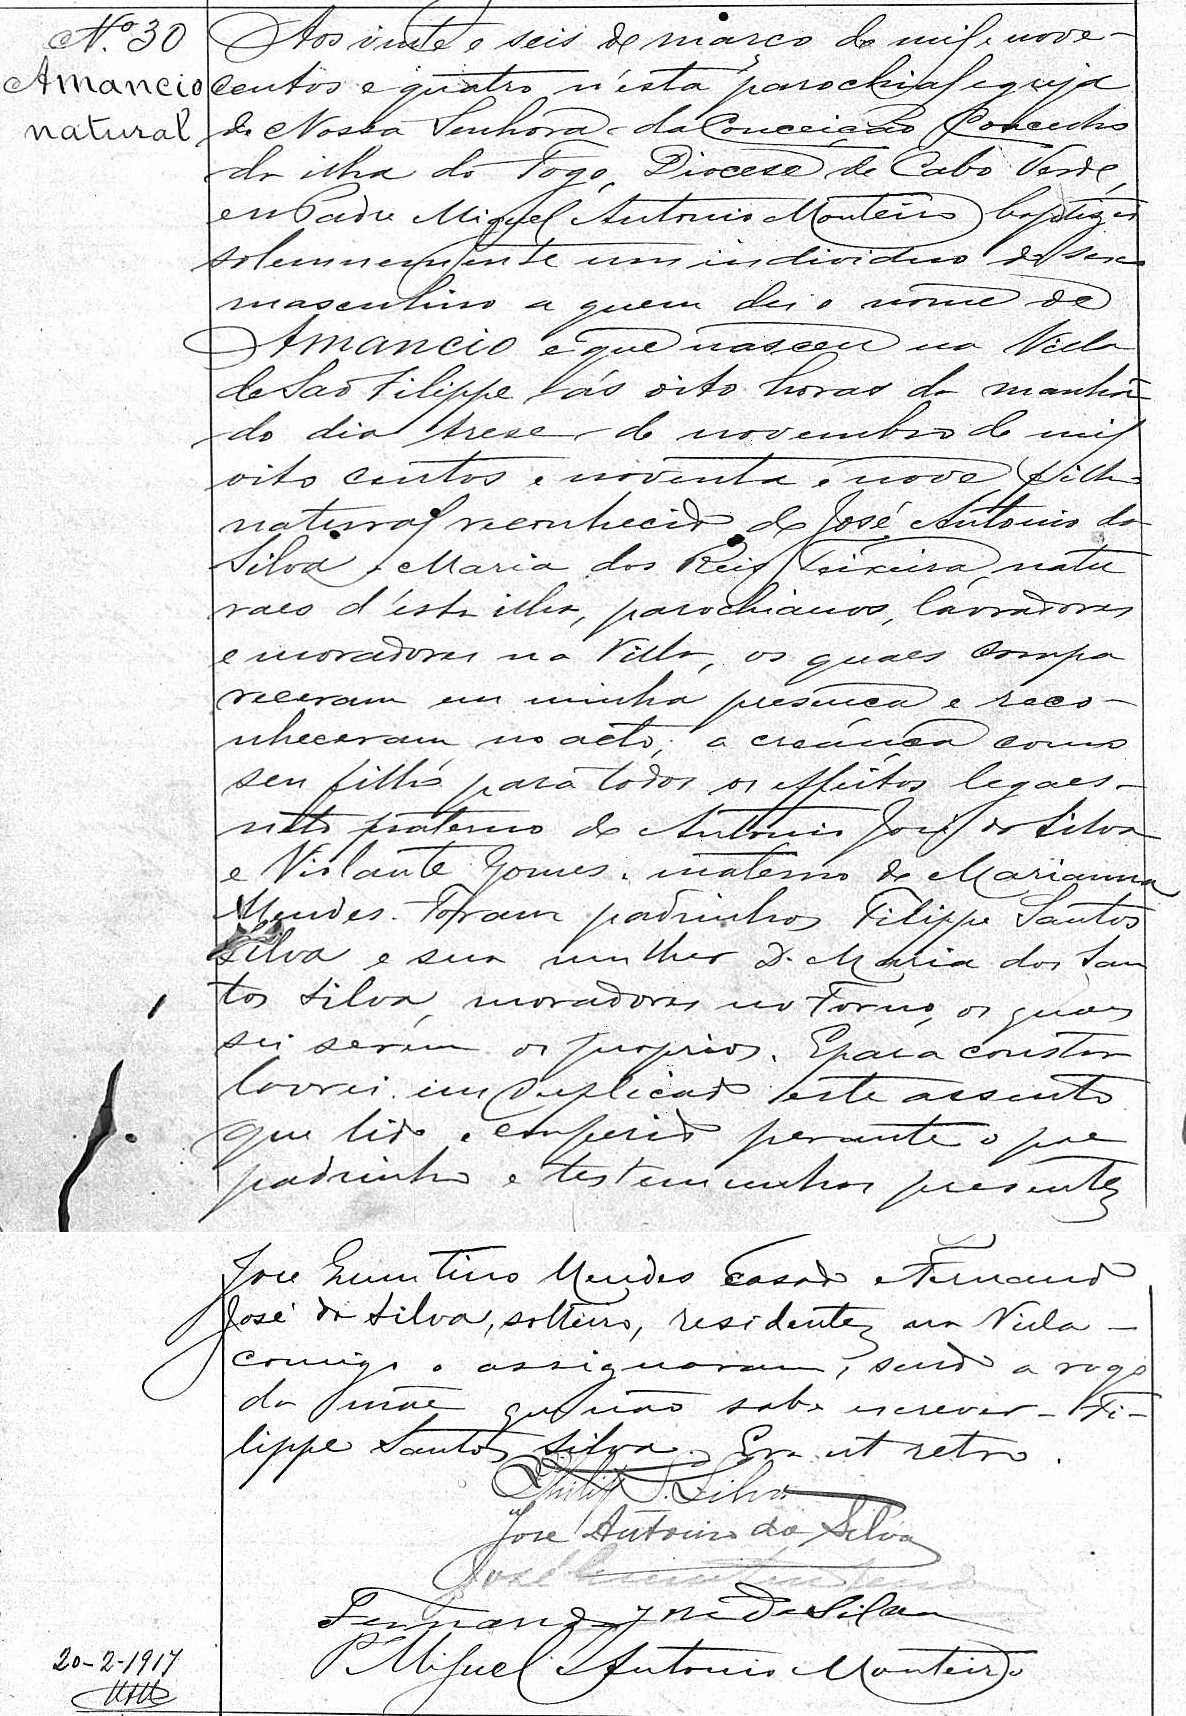 Nº 30
Amancio
natural
Aos vinte e seis de março de mil e nove-
centos e quatro n'esta parochial egreja
de Nossa Senhora da Conceição Concelho
da ilha do Fogo, Diocese de Cabo Verde,
eu Padre Miguel Antonio Monteiro baptizei
solemnemente um individuo do sexo
masculino a quem dei o nome de
Amancio e que nasceu na Villa
de Sao Filippe ás oito horas da manhã
do dia trese de novembro de mil
oito centos e noventa e nove, filho
natural reconhecido de José Antonio da
Silva e Maria dos Reis Teixeira, natu
raes d'esta ilha, parochianos, lavradores
e moradores na Villa, os quaes compa
receram em minha presença e reco-
nheceram no acto, a creança como
seu filho para todos os effeitos legaes-
neto paterno de Antonio José da Silva
e Violante Gomes. materno de Marianna
Mendes. Foram padrinhos Filippe Santos
Silva e sua mulher D. Maria dos San
tos Silva, moradores no Forno, os quaes
sei serem os proprios. E para constar
lavrei em duplicado este assento
que lido e conferido perante o pae
padrinho e testemunhas presentes
Jose Quintino Mendes casado e Fernando
José da Silva, solteiro, residentes na Villa-
comigo o assignaram, sendo a rogo
da mãe que não sabe escrever- Fi-
lippe Santos Silva. Era ut retro.
Philip S. Silva
Jose Antonio da Silva
José Quintino Mendes
Fernando José da Silva
P.e Miguel Antonio Monteiro
20-2-1917